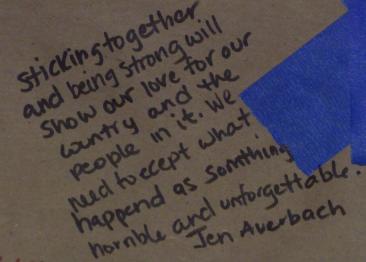 sticking together
and being strong will
show our love for our
country and the
people in it. We
need to ecept what
happend as somthing
horrible and unforgettable.
Jen Averbach